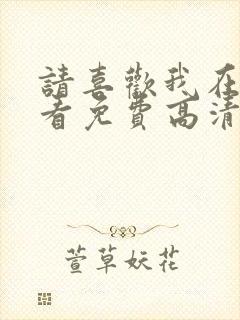 請喜歡我在
看免費高清
萱草妖花